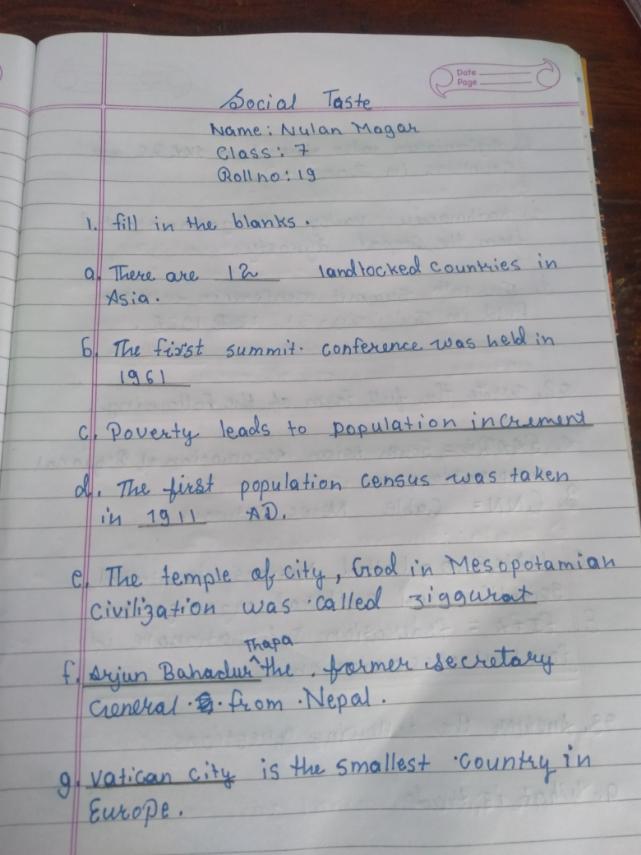 Date
Page
Social Taste
Name: Nulan Magar
Class: 7
Roll no: 19
1. fill in the blanks.
a. There are 12 landlocked countries in
Asia.
b. The first summit. conference was held in
1961
c. Poverty leads to population increment
d. The first population census was taken
in 1911 AD.
e. The temple of city, God in Mesopotamian
Civilization was called ziggurat
f. Arjun Bahadur Thapa the former secretary
General from Nepal.
g. Vatican city is the smallest country in
Europe.